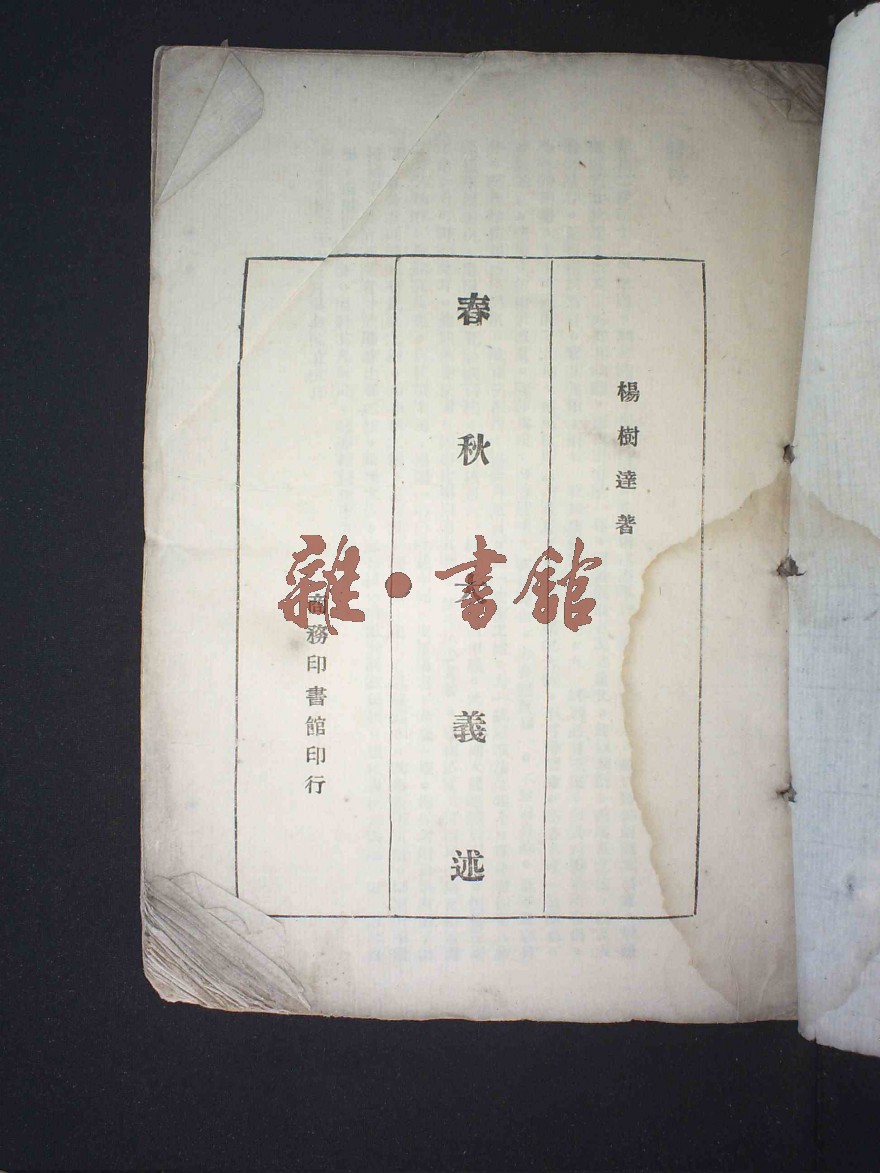 楊樹達著
春秋大義述
商務印書館印行
雜·書館